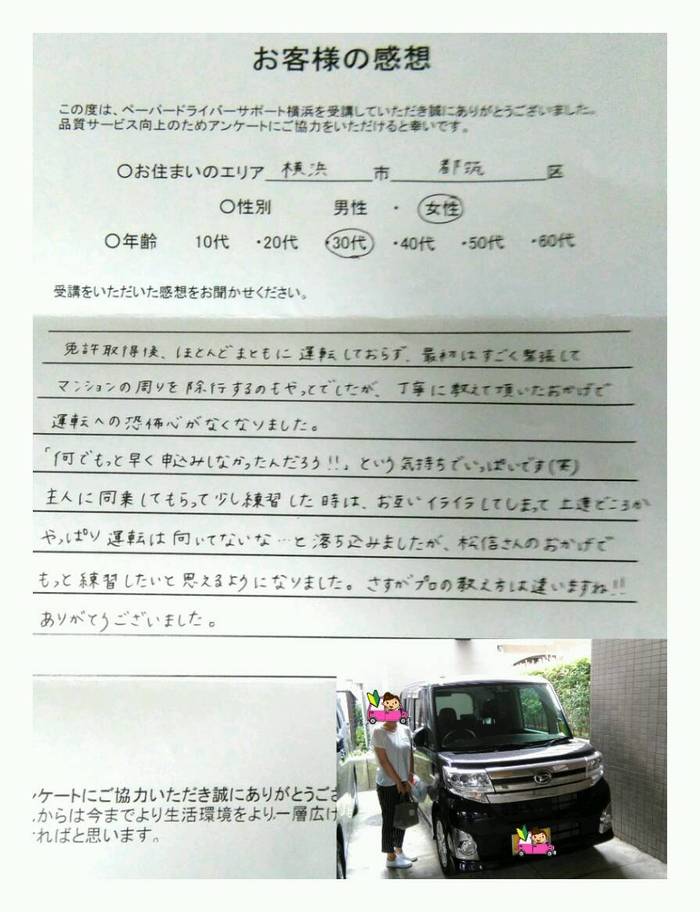 お客様の感想
この度は、ペーパードライバーサポート横浜を受講していただき誠にありがとうございました。
品質サービス向上のためアンケートにご協力をいただけると幸いです。
〇お住まいのエリア 横浜 市 都筑 区
〇性別 男性 ・ 女性
〇年齢 10代 ・20代 ・30代 ・40代 ・50代 ・60代
受講をいただいた感想をお聞かせください。
免許取得後、ほとんどまともに運転しておらず、最初はすごく緊張して
マンションの周りを除行するのもやっとでしたが、丁寧に教えて頂いたおかげで
運転への恐怖心がなくなりました。
「何でもっと早く申込みしなかったんだろう!!」という気持ちでいっぱいです(笑)
主人に同乗してもらって少し練習した時は、お互いイライラしてしまって上達どころか
やっぱり運転は向いてないな…と落ち込みましたが、松信さんのおかげで
もっと練習したいと思えるようになりました。さすがプロの教え方は違いますね!!
ありがとうございました。
ンケートにご協力いただき誠にありがとうござ
からは今までより生活環境をより一層広げ
ければと思います。